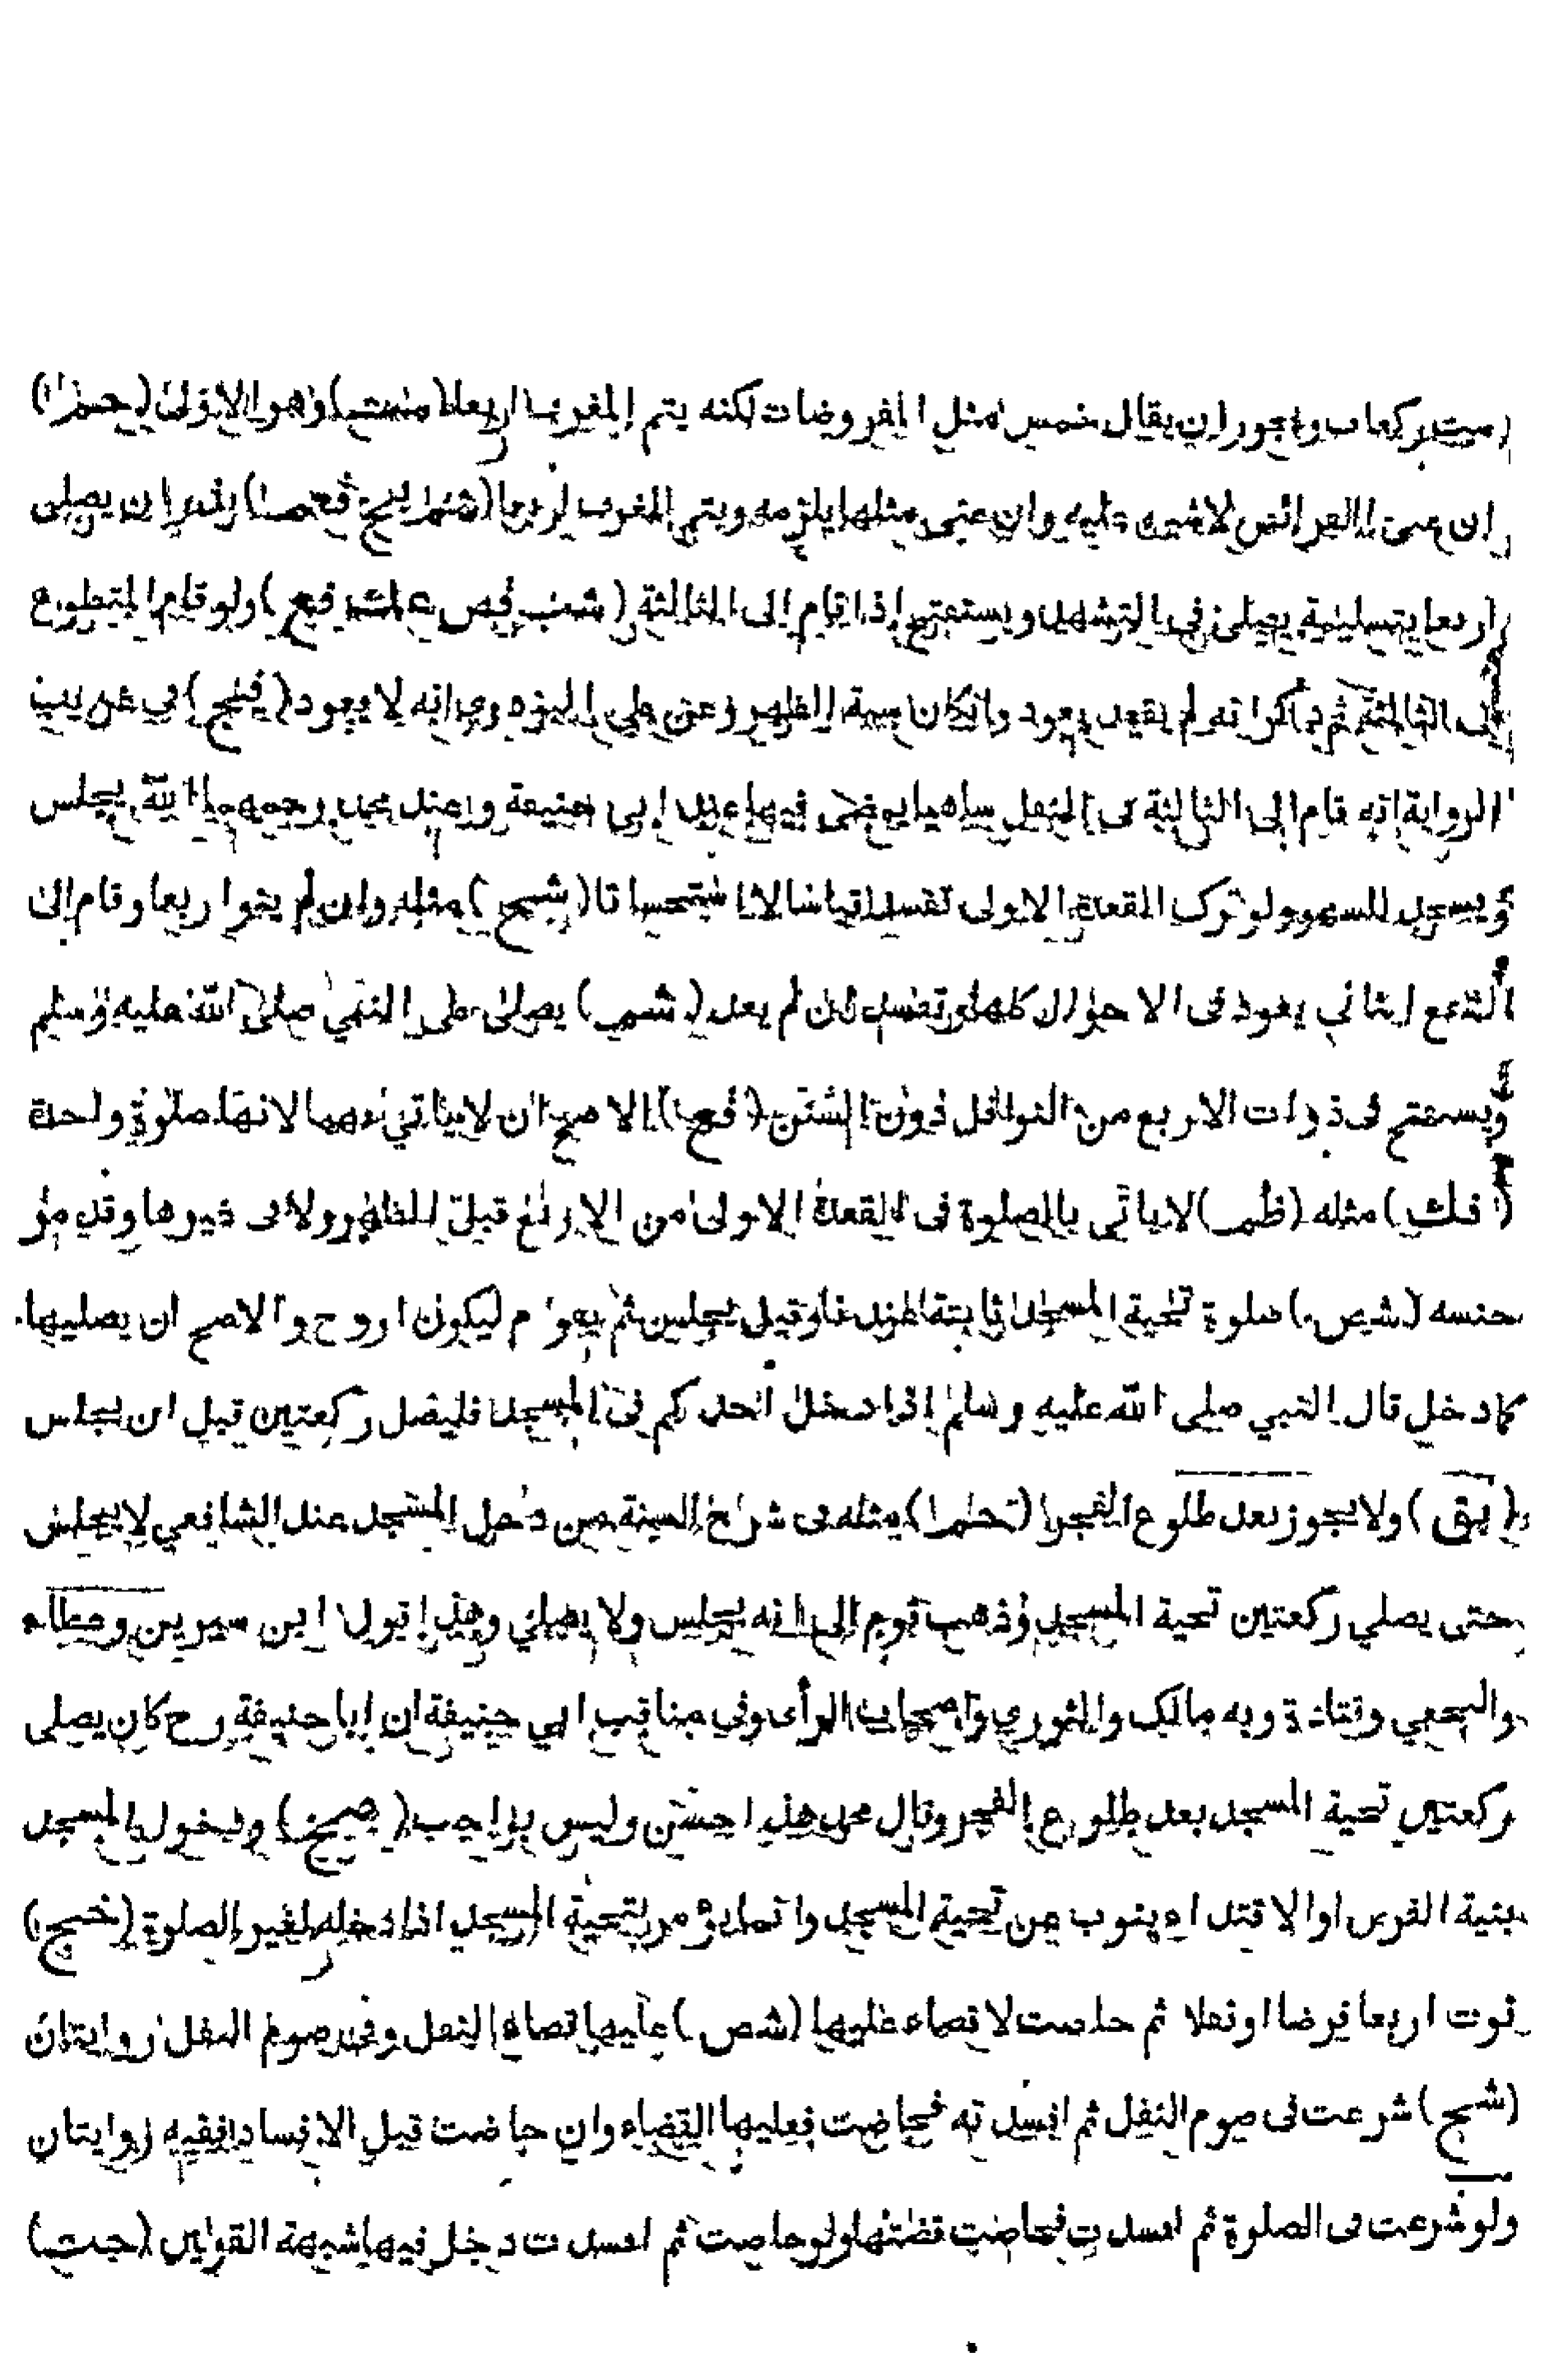 ركعات ويجوز ان يقال خمس مثل المفروضات لكنه يتم المغرب اربعا وهو الاولى
الفرائض لا شيء عليه وان عنى مثلها يلزمه ويتم المغرب اربعا ان يصلى
اربعا بتسليمة يصلى فى التشهد ويستفتح اذا قام الى الثالثة ولو قام المتطوع
الى الثالثة ثم ذكر انه لم يقعد يعود وانكان سنة الظهر وعن على البزدوى انه لا يعود
الرواية انه قام الى الثالثة فى النفل ساهيا يمضى فيها عند ابى حنيفة وعند محمد رحمهما الله يجلس
ويسجد للسهو ولو ترك القعدة الاولى تفسد قياسا لا استحسانا (شبح) مثله وان لم ينو اربعا وقام الى
يعود فى الاحوال كلها وتفسد ان لم يعد يصلى على النبي صلى الله عليه وسلم
ويستفتح فى ذوات الاربع من النوافل دون السنن الاصح ان لا ياتي بهما لانها صلوة واحدة
(فك) مثله (ظم) لا ياتي بالصلوة فى القعدة الاولى من الاربع قبل الظهر ولا فى غيرها وقد مر
جنسه (شص) صلوة تحية المسجد ثابتة عندنا وقيل يجلس ثم يقوم ليكون اروح والاصح ان يصليها
كما دخل قال النبي صلى الله عليه وسلم اذا دخل احدكم فى المسجد فليصل ركعتين قبل ان يجلس
(بق) ولا يجوز بعد طلوع الفجر مثله فى شرح السنة من دخل المسجد عند الشافعي لا يجلس
حتى يصلي ركعتين تحية المسجد وذهب قوم الى انه يجلس ولا يصلي وهذا قول ابن سيرين وعطاء
والنخعي وقتادة وبه مالك والثوري واصحاب الرأى وفي مناقب ابي حنيفة ان ابا حنيفة رح كان يصلى
ركعتين تحية المسجد بعد طلوع الفجر وقال محمد هذا حسن وليس بواجب ودخول المسجد
بنية الفرض او الاقتداء ينوب عن تحية المسجد وانما يؤمر بتحية المسجد اذا دخله لغير الصلوة
نوت اربعا فرضا او نفلا ثم حاضت لا قضاء عليها (شص) عليها قضاء النفل وفى صوم النفل روايتان
(شبح) شرعت فى صوم النفل ثم افسدته فحاضت فعليها القضاء وان حاضت قبل الافساد ففيه روايتان
ولو شرعت فى الصلوة ثم افسدت فحاضت قضتها ولو حاضت ثم افسدت دخل فيها شبهة القولين (جت)